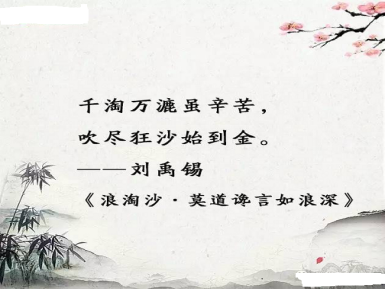 千淘万漉虽辛苦，
吹尽狂沙始到金。
——刘禹锡
《浪淘沙·莫道谗言如浪深》